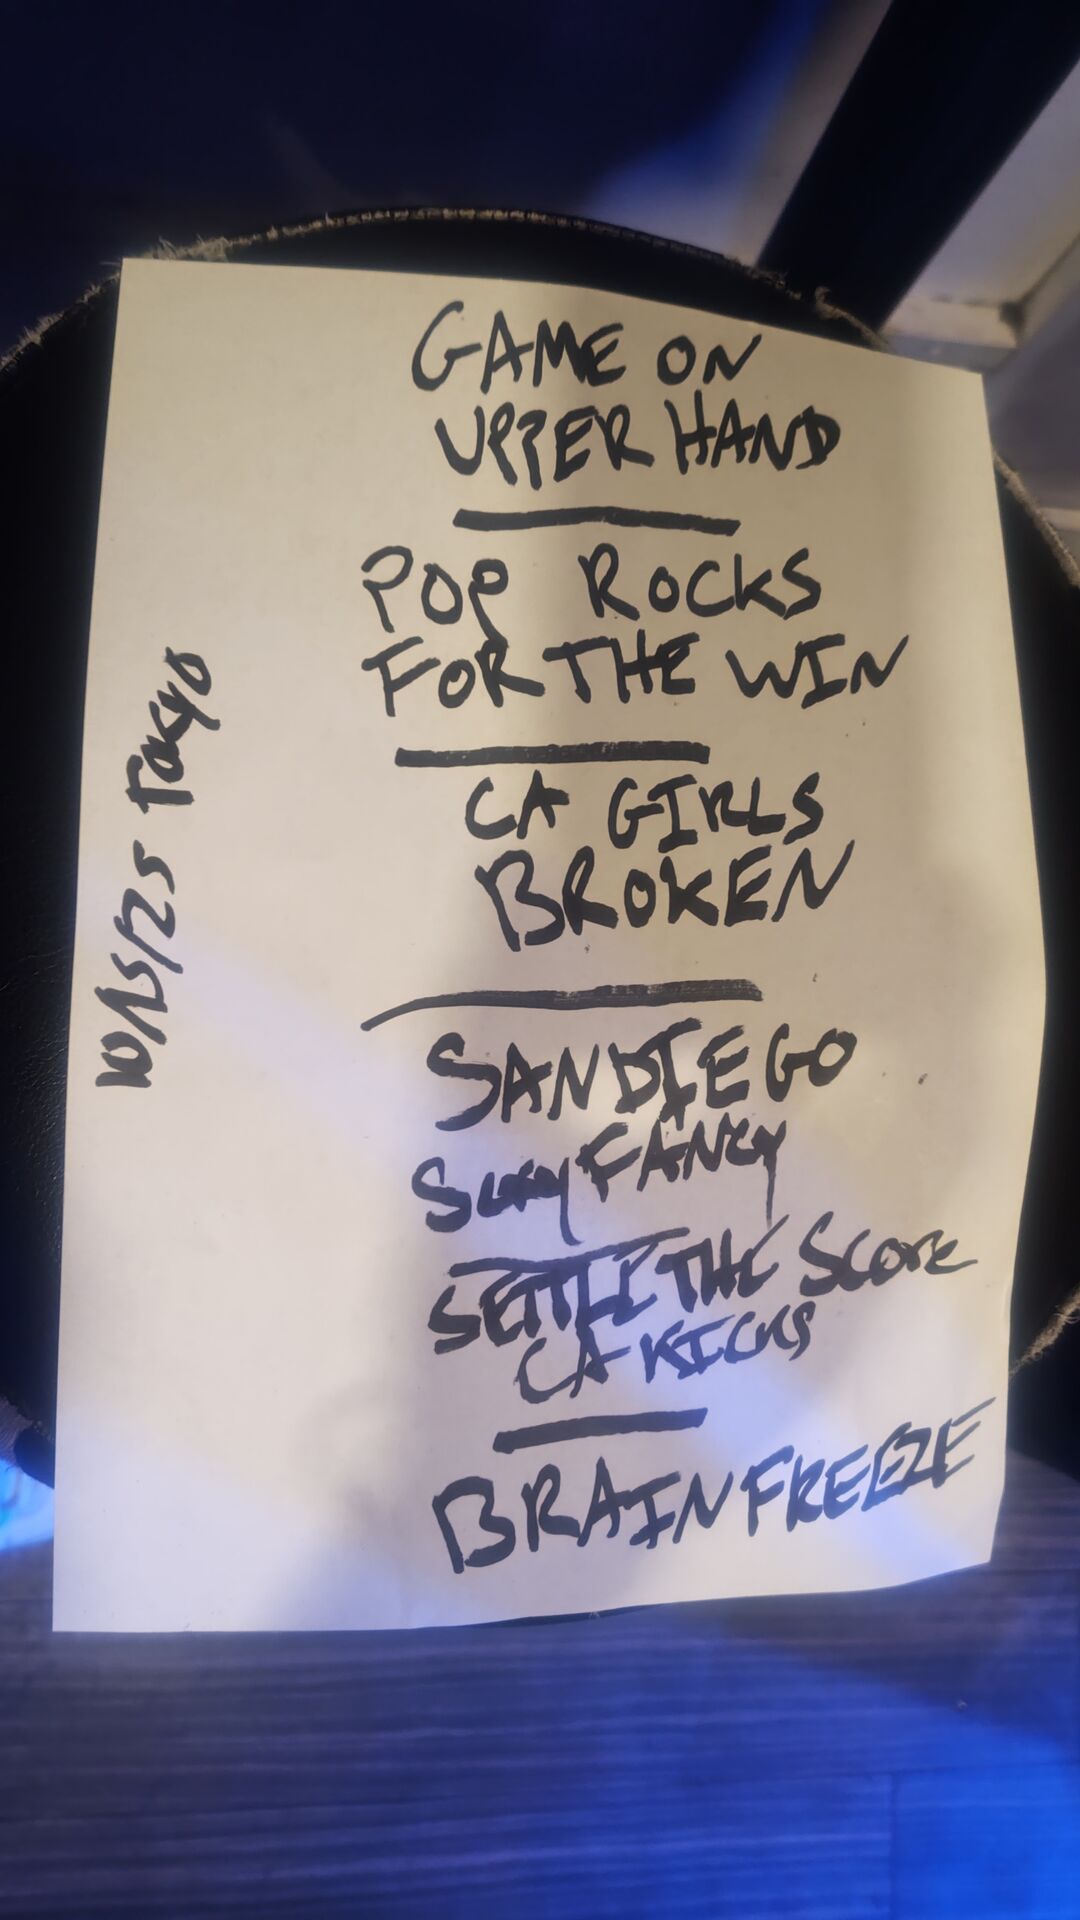 GAME ON
UPPER HAND
POP ROCKS
FOR THE WIN
CA GIRLS
BROKEN
SAN DIEGO
FANCY
SETTLE THE SCORE
CA KICKS
BRAIN FREEZE
10/15/25 TOKYO